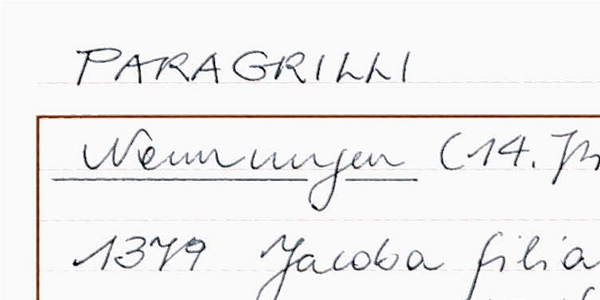 PARAGRILLI
Nennungen (14.
1379 Jacoba filia